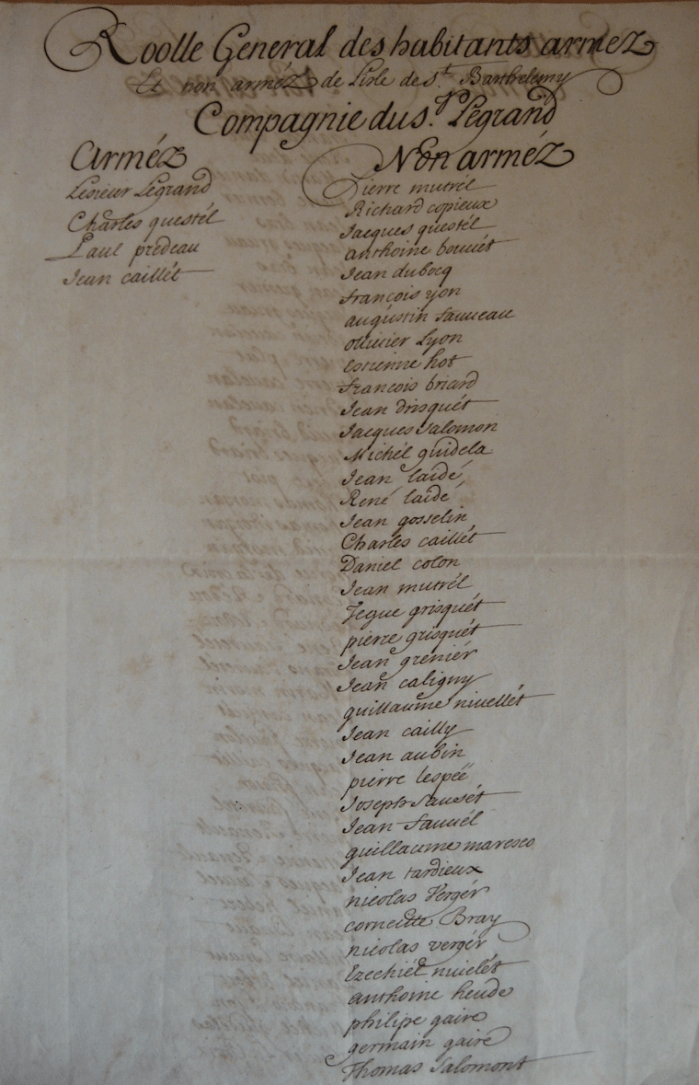 Roolle General des habitants arméz
Et non arméz de Lisle de St. Barthelemy
Compagnie du sr. Legrand
Arméz
Lesieur Legrand
Charles questél
Paul predeau
Jean caillét
Non arméz
Pierre mutrél
Richard copieux
Jacques questél
anthoine bouuét
Jean dubocq
françois yon
augustin fauueau
olliuier Lyon
Estienne hot
francois briard
Jean drisquét
Jacques Salomon
Michél guidela
Jean laidé
René laidé
Jean gosselin
Charles caillét
Daniel colon
Jean mutrél
grisquét
pierre grisquét
Jean greniér
Jean caligny
guillaume niuellét
Jean cailly
Jean aubin
pierre lespéé
Joseph Sausét
Jean fauuél
guillaume maresco
Jean tardieux
nicolas Vergér
Bray
nicolas vergér
Ezechiél niuelét
anthoine heude
philipe gaire
germain gairé
Thomas Salomont